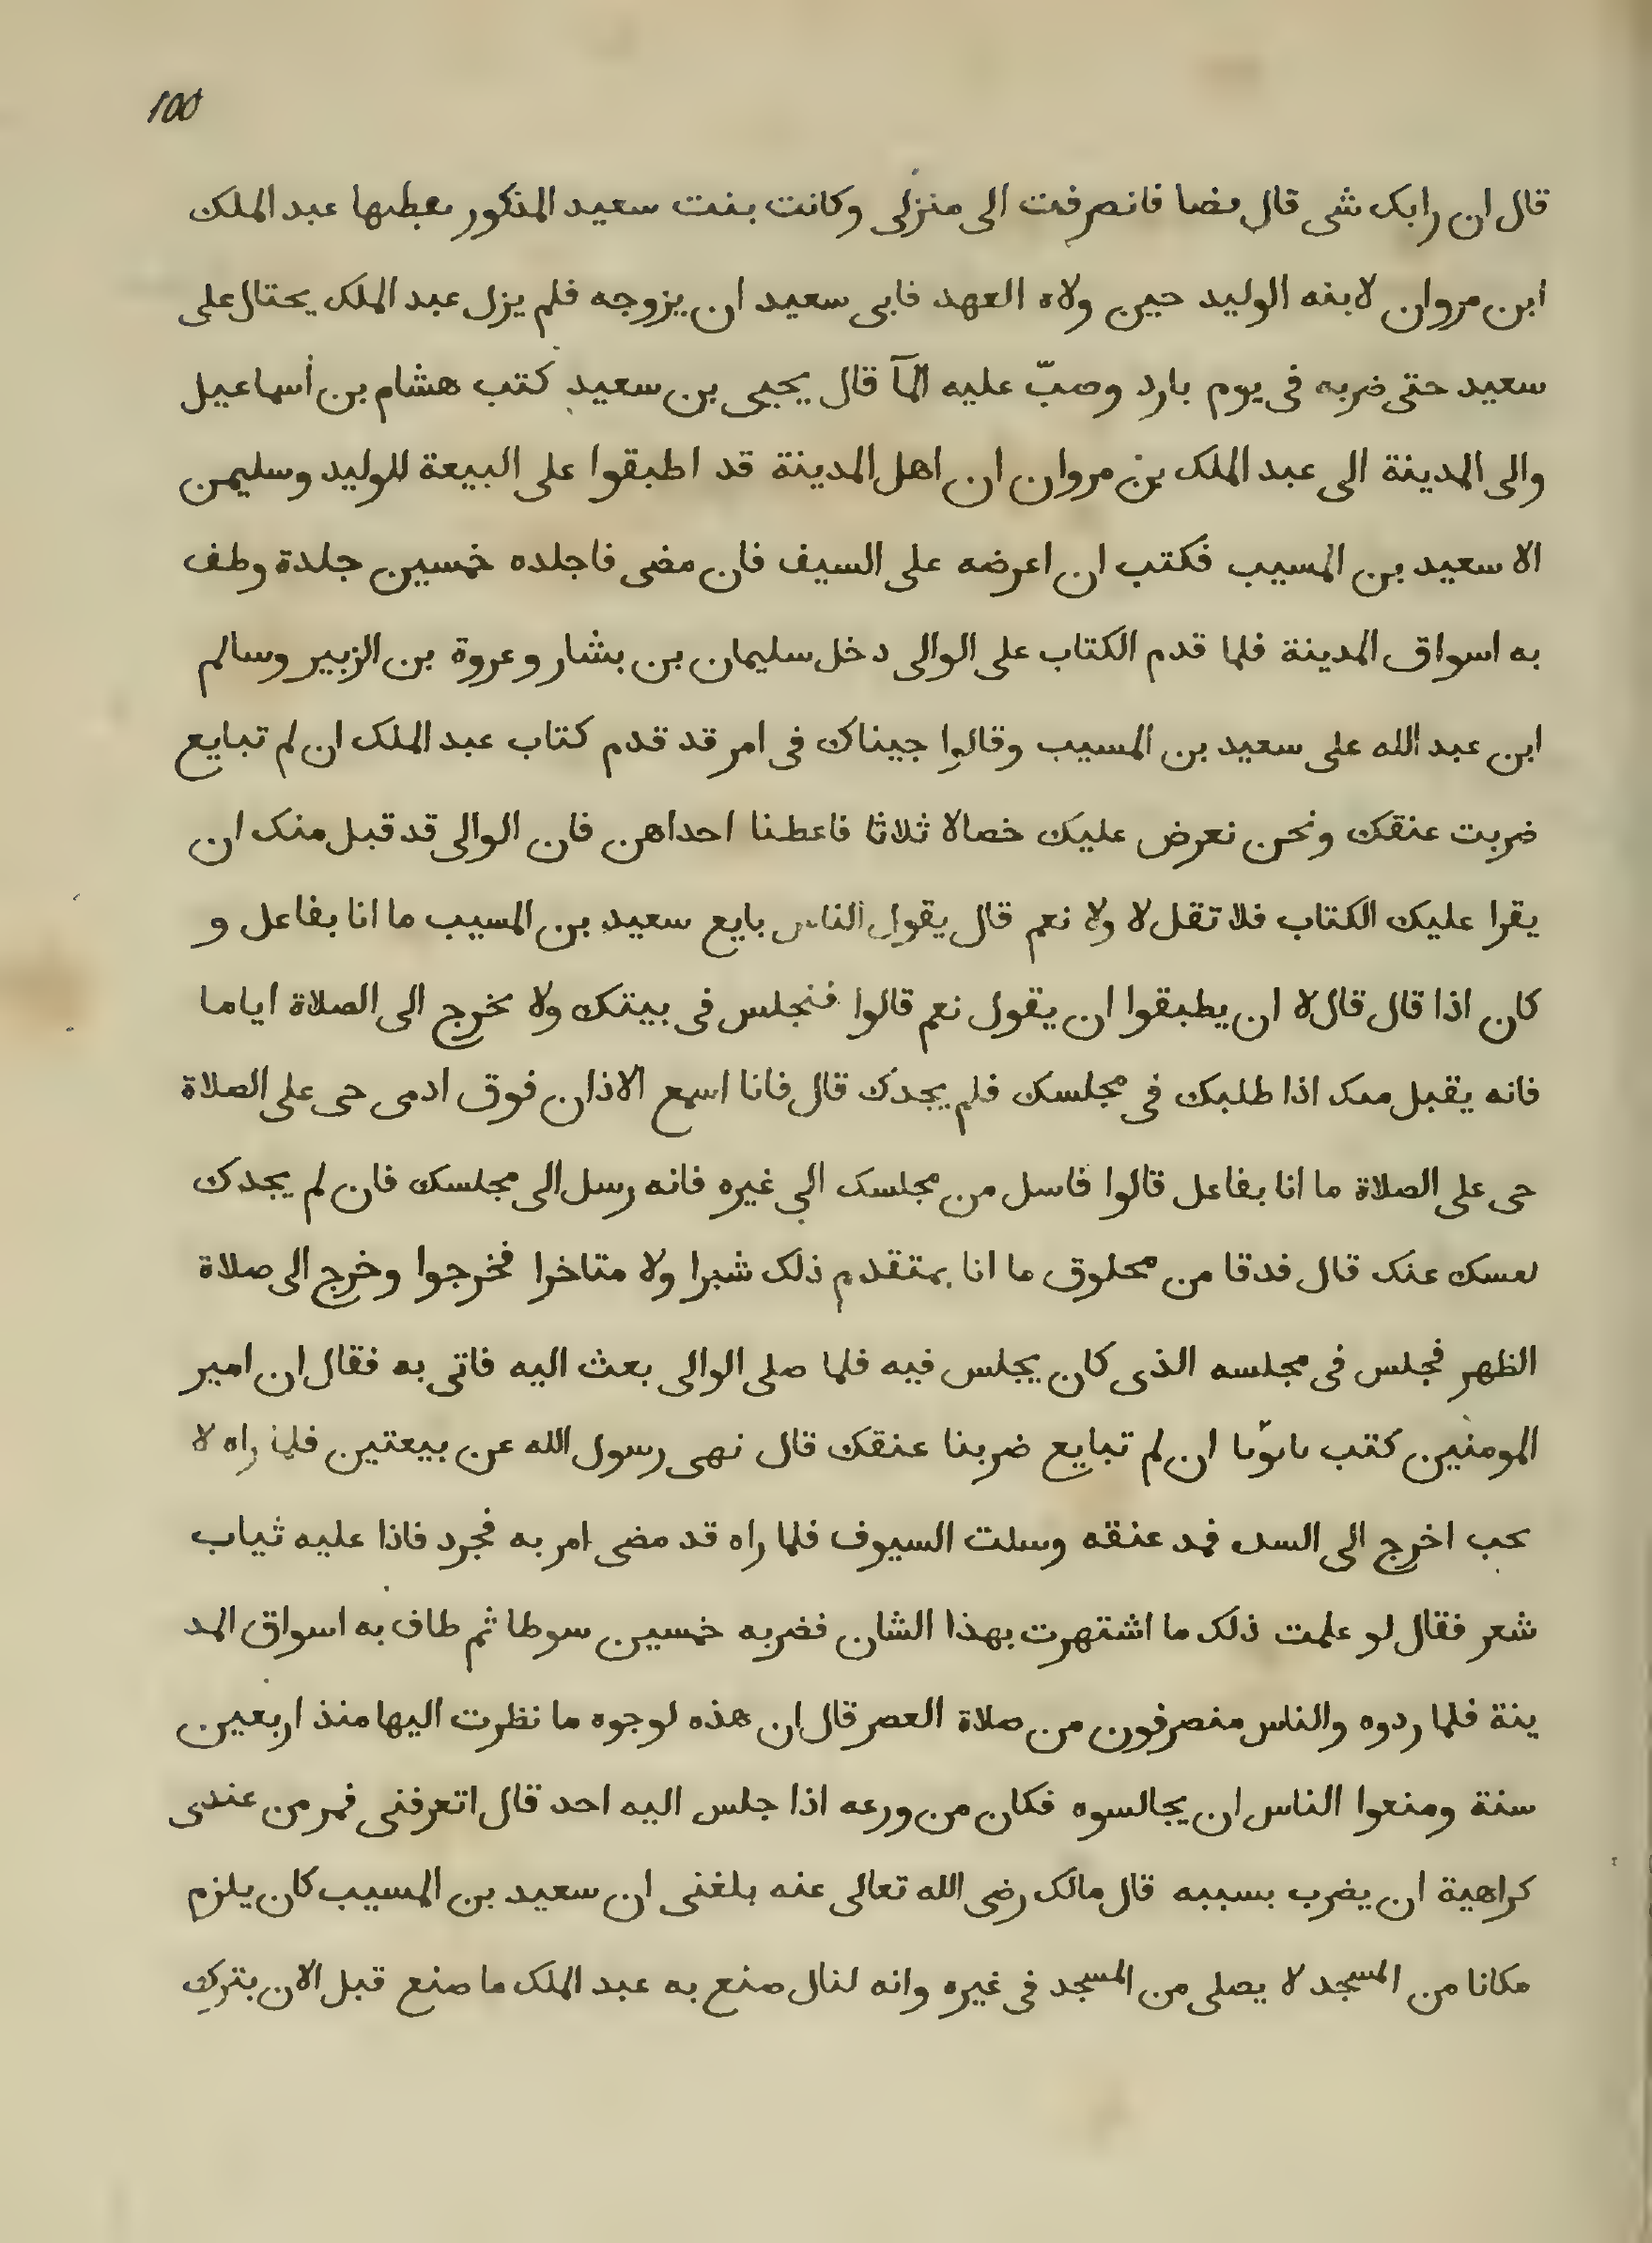 100
قال ان رابك شى قال مضا فانصرفت الى منزلى وكانت بنت سعيد المذكور يخطبها عبد الملك
ابن مروان لابنه الوليد حين ولاه العهد فابى سعيد ان يزوجه فلم يزل عبد الملك يحتال على
سعيد حتى ضربه فى يوم بارد وصبّ عليه المآ قال يحيى بن سعيد كتب هشام بن أسماعيل
والى المدينة الى عبد الملك بن مروان ان اهل المدينة قد اطبقوا على البيعة للوليد وسليمن
الا سعيد بن المسيب فكتب ان اعرضه على السيف فان مضى فاجلده خمسين جلدة وطف
به اسواق المدينة فلما قدم الكتاب على الوالى دخل سليمان بن بشار وعروة بن الزبير وسالم
ابن عبد الله على سعيد بن المسيب وقالوا جيناك فى امر قد قدم كتاب عبد الملك ان لم تبايع
ضربت عنقك ونحن نعرض عليك خصالا ثلاثا فاعطنا احداهن فان الوالى قد قبل منك ان
يقرا عليك الكتاب فلا تقل لا ولا نعم قال يقول الناس بايع سعيد بن المسيب ما انا بفاعل و
كان اذا قال قال لا ان يطبقوا ان يقول نعم قالوا فنجلس فى بيتك ولا تخرج الى الصلاة اياما
فانه يقبل منك اذا طلبك فى مجلسك فلم يجدك قال فانا اسمع الاذان فوق ادمى حى على الصلاة
حى على الصلاة ما انا بفاعل قالوا فاسل من مجلسك الى غيره فانه رسل الى مجلسك فان لم يجدك
عنك قال فدقا من محلوق ما انا بمتقدم ذلك شبرا ولا متاخرا فخرجوا وخرج الى صلاة
الظهر فجلس فى مجلسه الذى كان يجلس فيه فلما صلى الوالى بعث اليه فاتى به فقال ان امير
المومنين كتب ان لم تبايع ضربنا عنقك قال نهى رسول الله عن بيعتين فلما راه لا
يجب اخرج الى السده فمد عنقه وسلت السيوف فلما راه قد مضى امر به فجرد فاذا عليه ثياب
شعر فقال لو علمت ذلك ما اشتهرت بهذا الشان فضربه خمسين سوطا ثم طاف به اسواق المد
ينة فلما ردوه والناس منصرفون من صلاة العصر قال ان هذه لوجوه ما نظرت اليها منذ اربعين
سنة ومنعوا الناس ان يجالسوه فكان من ورعه اذا جلس اليه احد قال اتعرفنى فمر من عندى
كراهية ان يضرب بسببه قال مالك رضى الله تعالى عنه بلغنى ان سعيد بن المسيب كان يلزم
مكانا من المسجد لا يصلى من المسجد فى غيره وانه لنال صنع به عبد الملك ما صنع قبل الان بترك